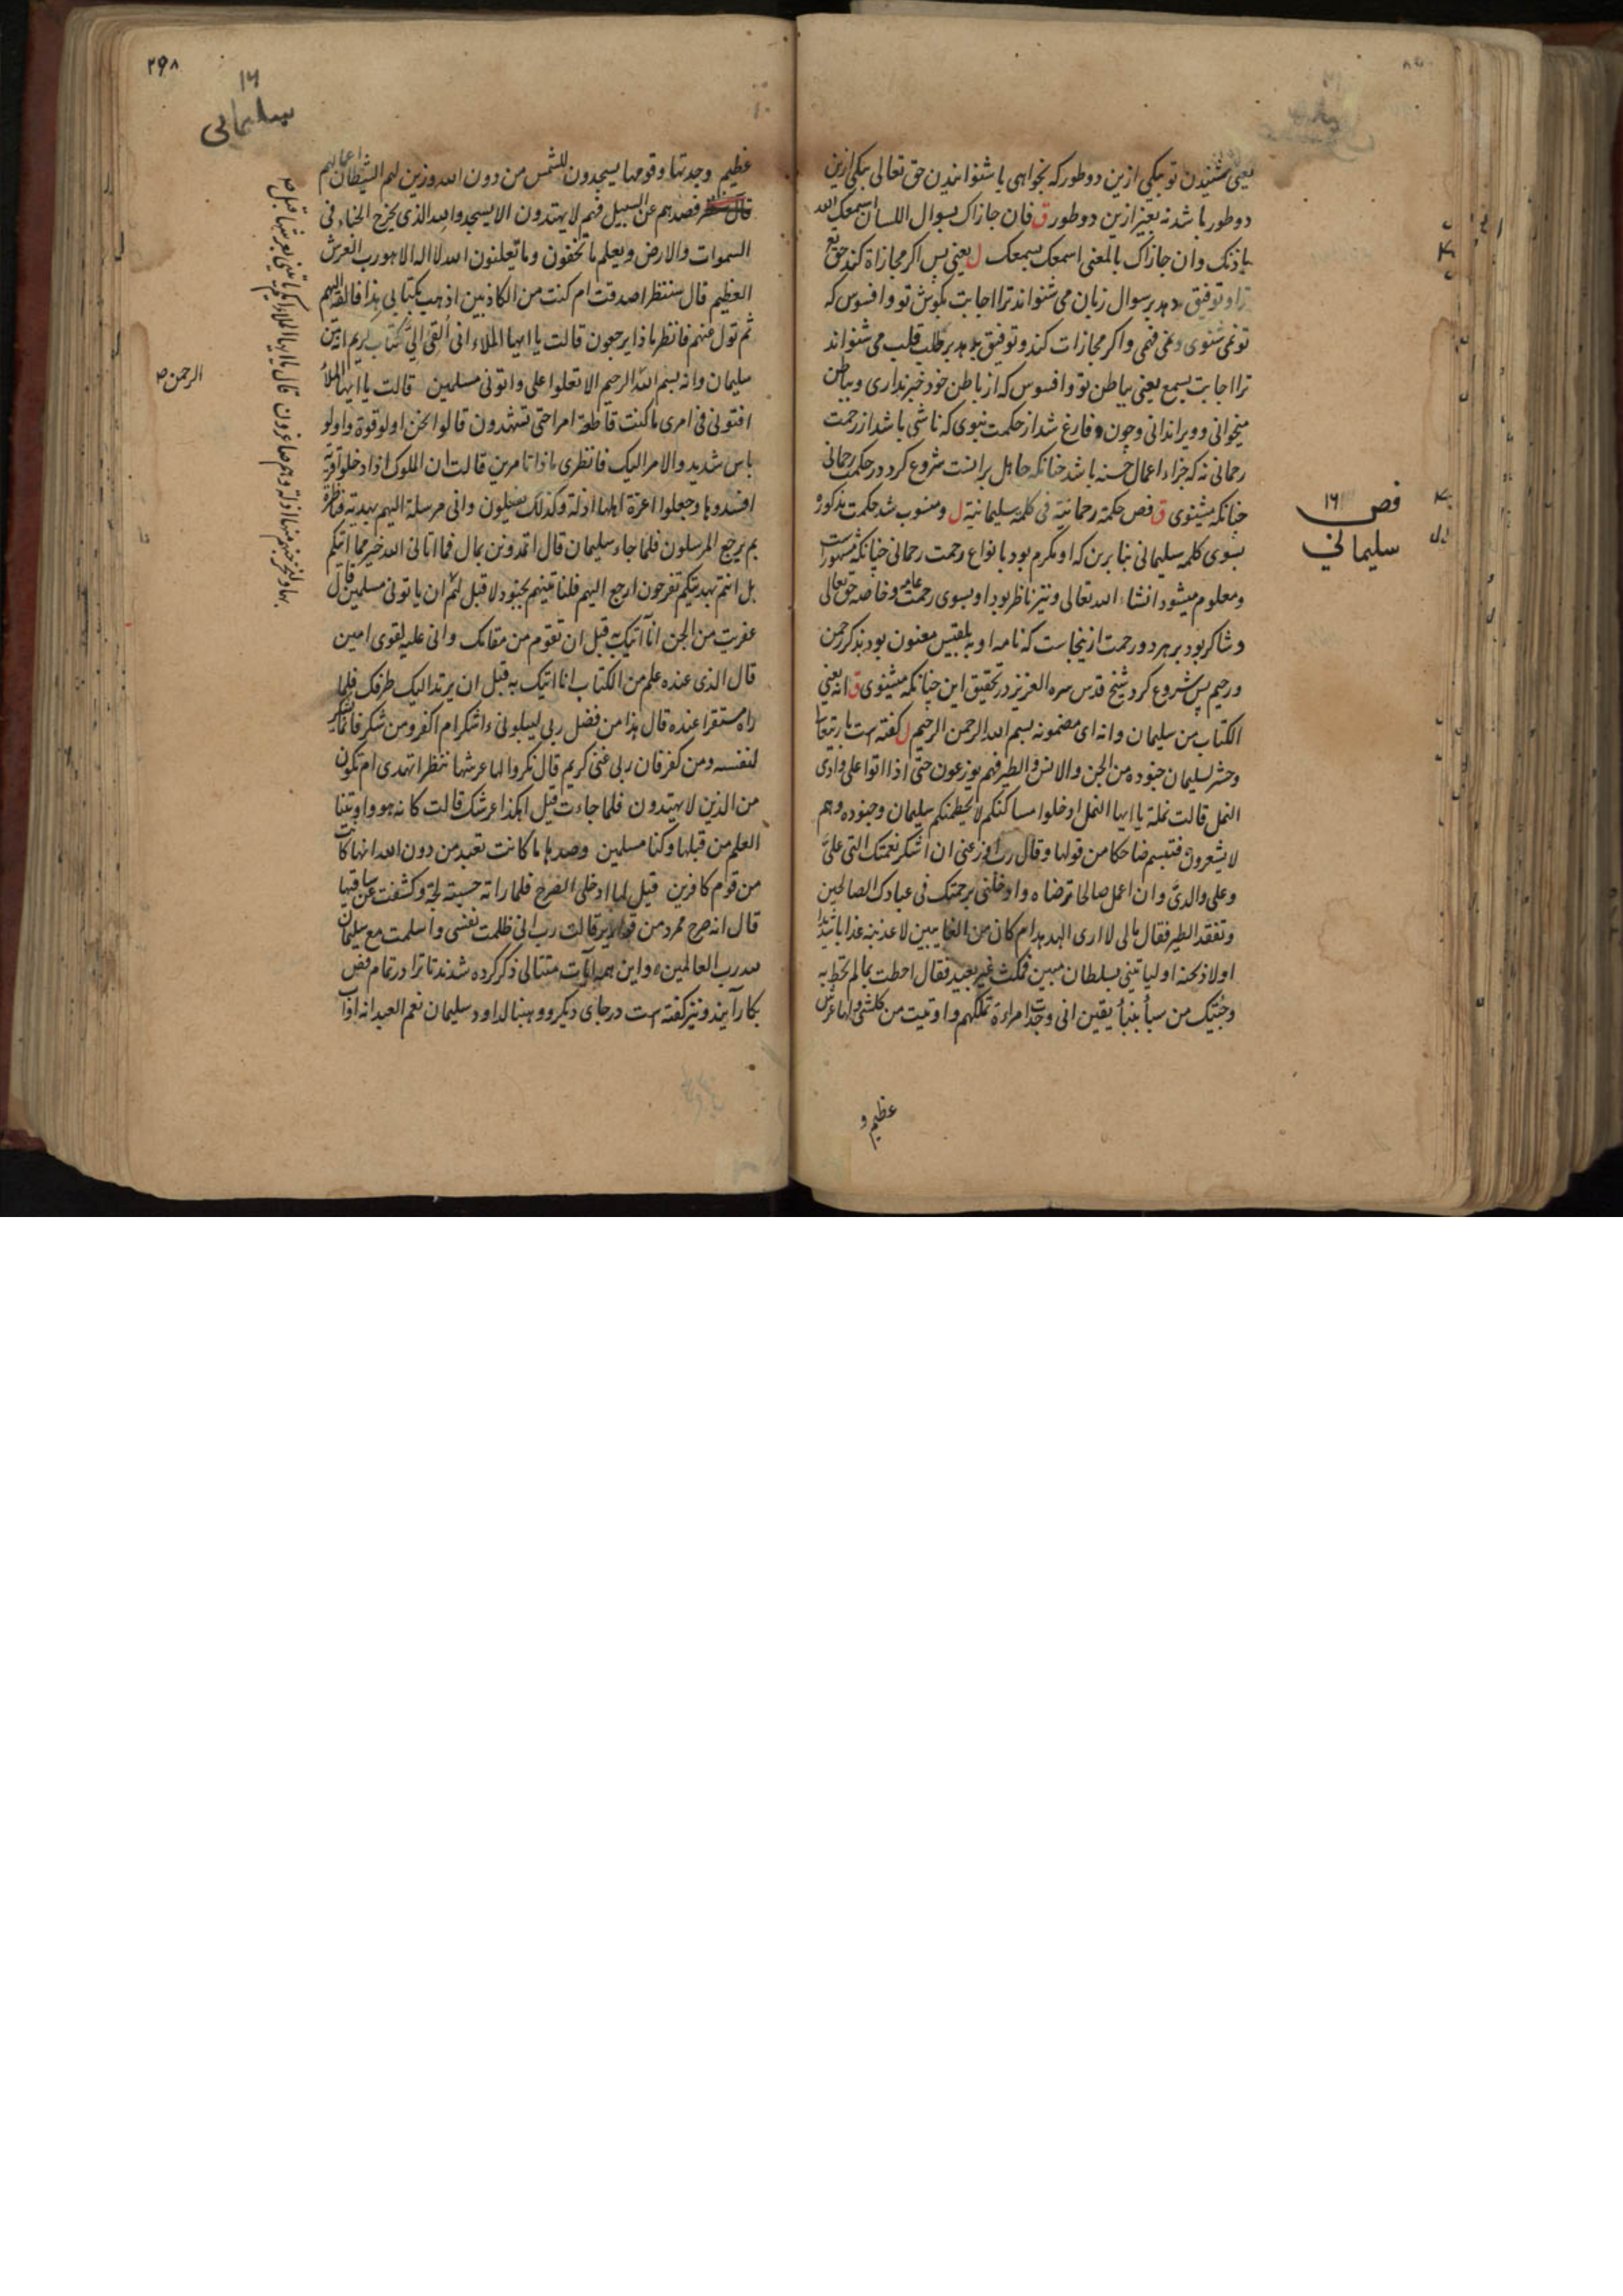 یعنی شنیدن تو بیکی ازین دو طور که بخواهی یا شنوانیدن حق تعالی بیکی ازین
دو طور باشد نه بغیر ازین دو طور ق فان جازاک بسوال اللسان اسمعک الله
باذنک وان جازاک بالمعنی اسمعک بسمعک ل یعنی پس اگر مجازاة کند حق تع
ترا و توفیق دهد بر سوال زبان می شنواند ترا اجابت بکوش تو و افسوس که
تو نمی شنوی و نمی فهمی و اگر مجازات کند و توفیق بدهد بر طلب قلب می شنواند
ترا اجابت بسمع یعنی بباطن تو و افسوس که از باطن خود خبر نداری و بباطن
میخوانی و ویرا ندانی و چون فارغ شد از حکمت نبوی که ناشی باشد از رحمت
رحمانی نه که جزاء اعمال حسنه باشد چنانکه جاهل بر آنست شروع کرد در حکمت رحمانی
چنانکه میشنوی ق فص حکمة رحمانیة فی کلمة سلیمانیة ل و منسوب شد حکمت مذکوره
بسوی کلمه سلیمانی بنا برین که او مکرم بود بانواع رحمت رحمانی چنانکه مشهورست
و معلوم میشود انشاء الله تعالی و نیز ناظر بود او بسوی رحمت عامه و خاصه حق تعالی
و شاکر بود بر هر دو رحمت ازینجاست که نامه او به بلقیس معنون بود بذکر رحمن
و رحیم پس شروع کرد شیخ قدس سره العزیز در تحقیق این چنانکه میشنوی ق انه یعنی
الکتاب من سلیمان وانه ای مضمونه بسم الله الرحمن الرحیم ل گفته است باریتعالی
وحشر لسلیمان جنوده من الجن والانس والطیر فهم یوزعون حتی اذا اتوا علی وادی
النمل قالت نملة یا ایها النمل ادخلوا مساکنکم لا یحطمنکم سلیمان وجنوده وهم
لا یشعرون فتبسم ضاحکا من قولها وقال رب اوزعنی ان اشکر نعمتک التی علیَّ
وعلی والدیَّ وان اعمل صالحا ترضاه وادخلنی برحمتک فی عبادک الصالحین
وتفقد الطیر فقال مالی لا اری الهدهد ام کان من الغایبین لاعذبنه عذابا شدیدا
اولاذبحنه اولیاتینی بسلطان مبین فمکث غیر بعید فقال احطت بمالم تحط به
وجئتک من سبأ بنبأ یقین انی وجدت امراءة تملکهم واوتیت من کلشی ولها عرش
عظیم و
فص ١٦
سلیمانی
٢٩٨
١٦
سلیمانی
عظیم وجدتها وقومها یسجدون للشمس من دون الله وزین لهم الشیطان اعمالهم
فصدهم عن السبیل فهم لا یهتدون الا یسجدوا لله الذی یخرج الخباء فی
السموات والارض ویعلم ما تخفون وما تعلنون الله لا اله الا هو رب العرش
العظیم قال سننظر اصدقت ام کنت من الکاذبین اذهب بکتابی هذا فالقه الیهم
ثم تول عنهم فانظر ماذا یرجعون قالت یا ایها الملاء انی القی الیَّ کتاب کریم انه من
سلیمان وانه بسم الله الرحیم الا تعلوا علی واتونی مسلمین قالت یا ایها الملأ
افتونی فی امری ما کنت قاطعة امرا حتی تشهدون قالوا نحن اولو قوة واولو
باس شدید والامر الیک فانظری ماذا تامرین قالت ان الملوک اذا دخلوا قریة
افسدوها وجعلوا اعزة اهلها اذلة وکذلک یفعلون وانی مرسلة الیهم بهدیة فناظرة
بم یرجع المرسلون فلما جاء سلیمان قال اتمدونن بمال فما اتانی الله خیر مما اتیکم
بل انتم بهدیتکم تفرحون ارجع الیهم فلناتینهم بجنود لا قبل لهم ان یاتونی مسلمین قال
عفریت من الجن انا آتیک به قبل ان تقوم من مقامک وانی علیه لقوی امین
قال الذی عنده علم من الکتاب انا اتیک به قبل ان یرتد الیک طرفک فلما
راه مستقرا عنده قال هذا من فضل ربی لیبلونی ءاشکر ام اکفر ومن شکر فانما یشکر
لنفسه ومن کفر فان ربی غنی کریم قال نکروا لها عرشها ننظر اتهتدی ام تکون
من الذین لا یهتدون فلما جاءت قیل اهکذا عرشک قالت کانه هو واوتینا
العلم من قبلها وکنا مسلمین وصدها ما کانت تعبد من دون الله انها کانت
من قوم کافرین قیل لها ادخلی الصرح فلما راته حسبته لجة وکشفت عن ساقیها
قال انه صرح ممرد من قواریر قالت رب انی ظلمت نفسی واسلمت مع سلیمان
لله رب العالمین و این همه آیات متتالی ذکر کرده شدند تا ترا در تمام فص
بکار آیند و نیز گفته است در جای دیگر ووهبنا لداود سلیمان نعم العبد انه اواب
الرحمن صح
بها ولنخرجنهم منها اذلة وهم صاغرون قال یا ایها الملاء ایکم یاتینی بعرشها قبل صح